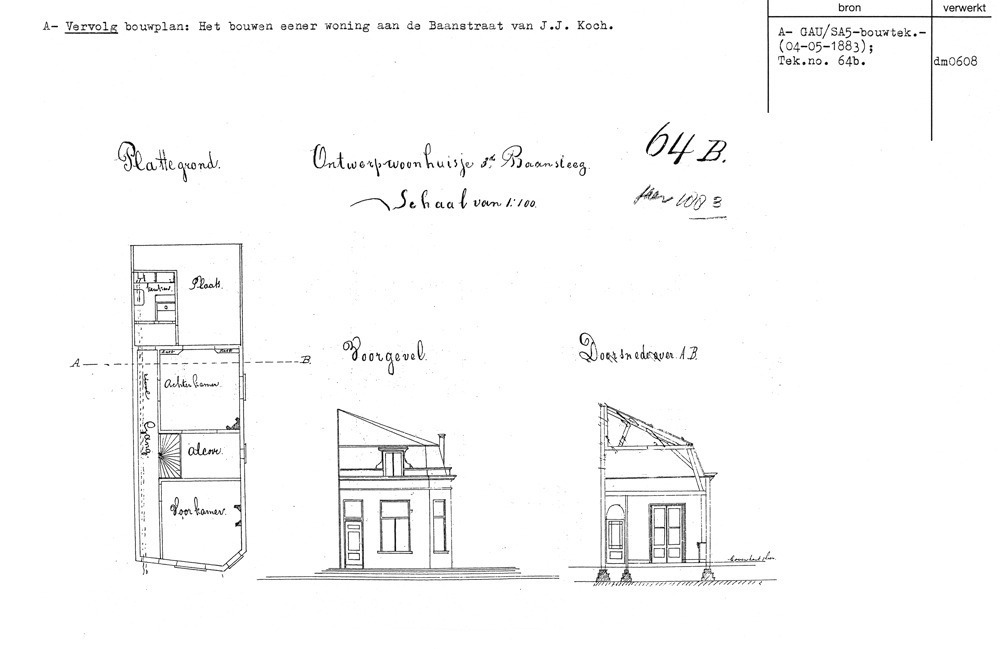 A- Vervolg bouwplan: Het bouwen eener woning aan de Baanstraat van J.J. Koch.
bron
verwerkt
A- GAU/SA5-bouwtek.-
(04-05-1883);
Tek.no. 64b.
dm0608
Plattegrond.
Ontwerp woonhuisje 3de Baansteeg.
Schaal van 1:100.
64 B.
jaar 1883
Plaats.
keuken.
kast
kast
A
B.
Achterkamer
Gang.
alcove.
Voorkamer.
Voorgevel.
Doorsnede over A.B.